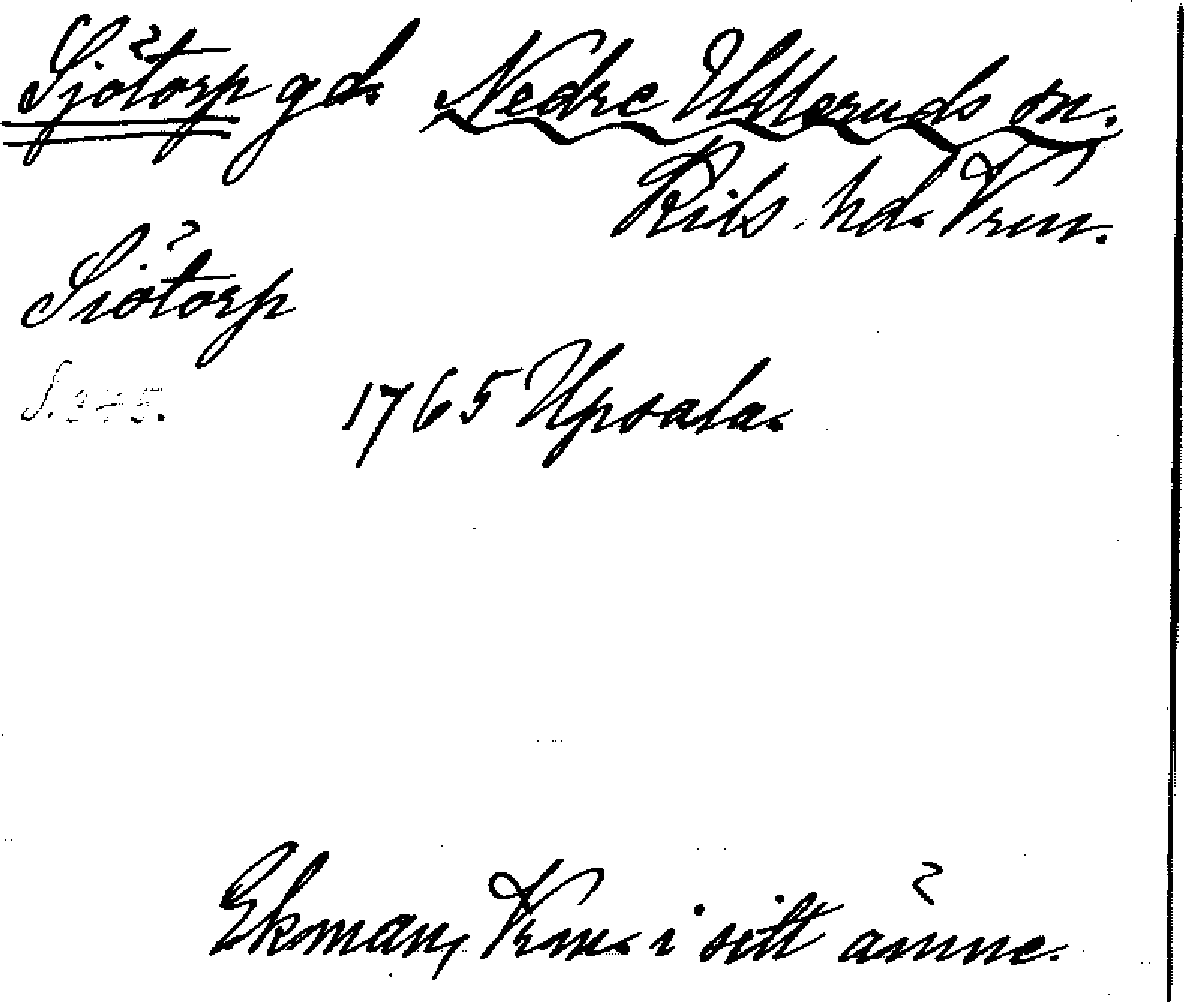 Sjötorp gd. Nedre Ulleruds sn.
Kils hd. Vrm.
Siötorp
S. 345.
1765 Upsala.
Ekman, Vrm. i sitt ämne.